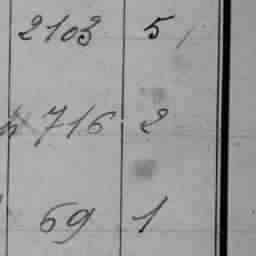 2103 5
716 2
69 1